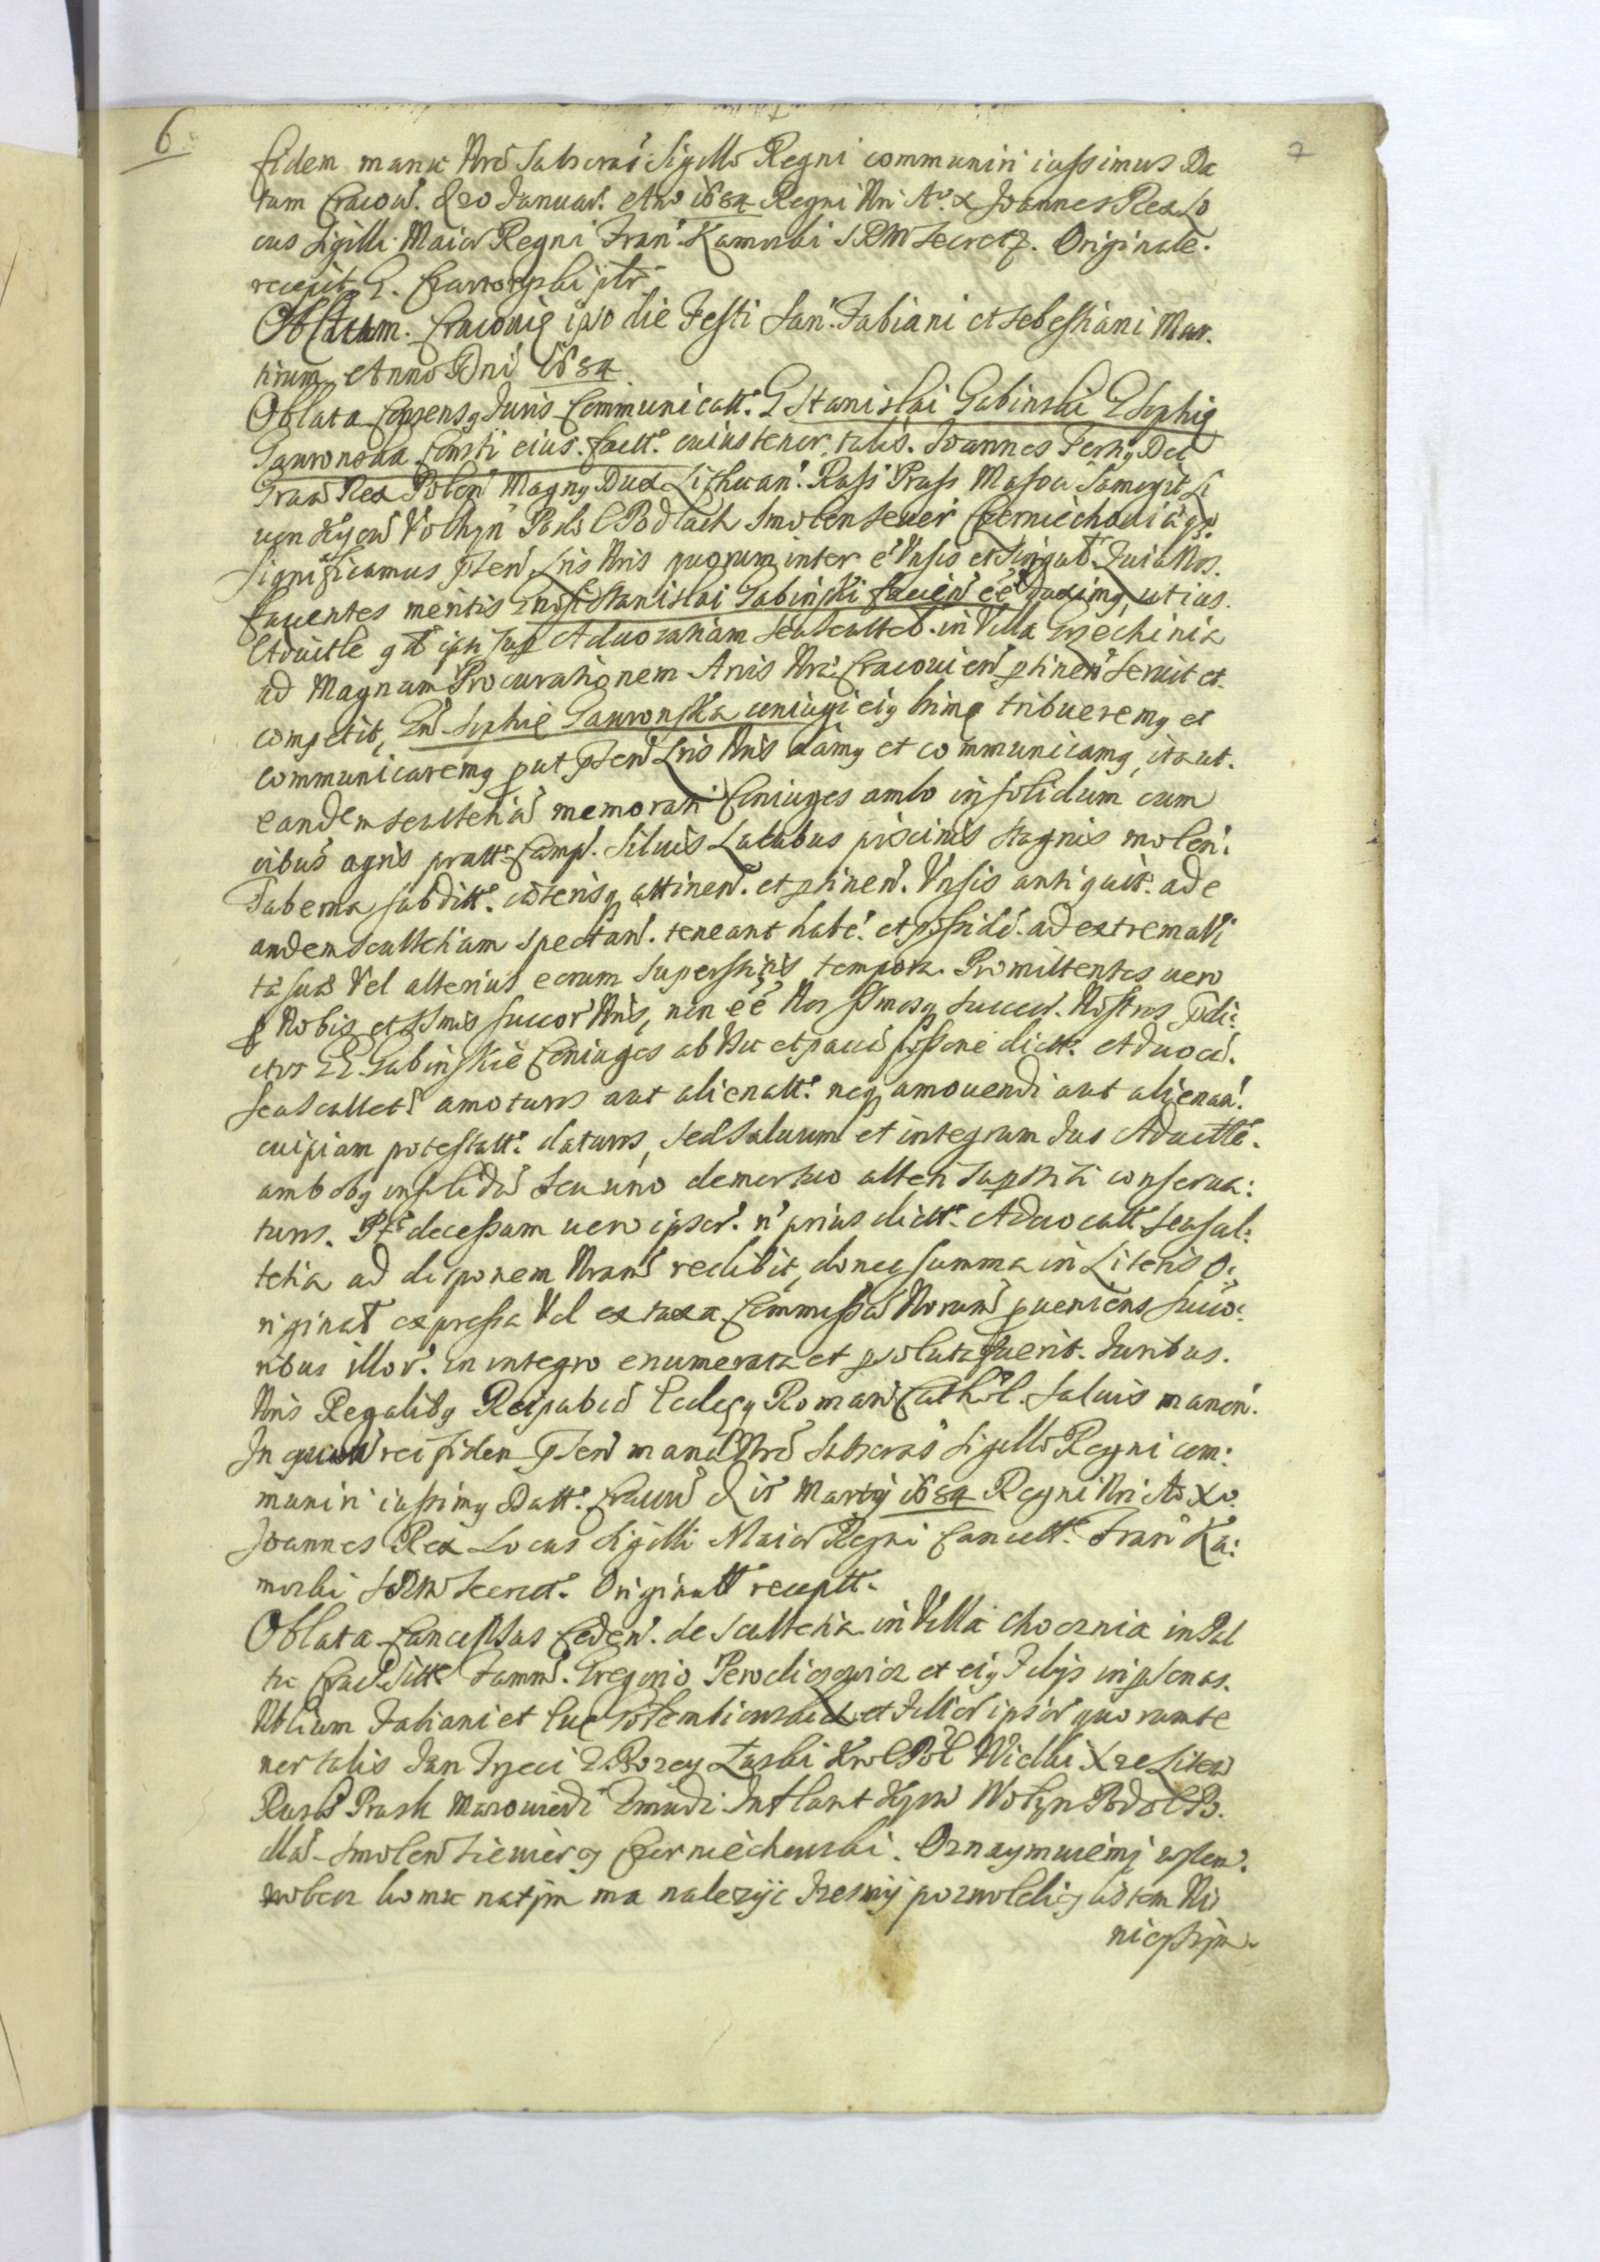 6
7
fidem manu Nra Subscras Sigillo Regni communiri iussimus Da
tum Cracov. d 20 Januar. Ano 1684 Regni Nri Ao. X Joannes Rex Lo
cus Sigilli Maior Regni Fran. Kamocki SRM Secret. Originale.
recepit G.
Oblatum. Cracovię ipso die Festi San. Fabiani et Sebestiani Mar.
tirum Anno Dni 1684
Oblata Consensq Juris Communicatt. G Stanislai Gabinski G Sophię
Gawronska Consti eius. factt. cuius tenor talis. Joannes Tertiq Dei
Graa Rex Polon Magnq Dux Lithuan. Russ Pruss Masov Samogit Li
von Kyjov Volhyn Podol Podlach Smolen Sever Czerniechoviaeqs.
Significamus Pten Lris Nris quorum inter e Vnsis et Singut. Quia Nos.
fauentes meritis Gnosi Stanislai Gabinski facien ee duximq, ut ius.
Advitle qd ipsi sup Aduocatiam seu Scultet. in Villa Grzechinia
ad Magnam Procurationem Arcis Nrae Cracovien ptinen seruit et.
competit, Gn Sophię Gawronska coniugi eiq trimę tribueremq et
communicaremq put Pten Lris Nris damq et communicamq, ita ut.
eandem Scultetia memorati Coniuges ambo in solidum cum
oibus agris pratt. Camp. Siluis Lacubus piscinis Stagnis molen.
Taberna subditt. coeterisq attinen. et ptinen. Vnsis antiquit. ad e
andem scultetiam spectan. teneant habe. et posside. ad extrema Vi
ta sua Vel alterius eorum superstitis tempora. Promittentes uero
p Nobis et Smis Succor Nris, non ee Nos Smosq Succes. Nostros Pdi:
ctos GG. Gabinskie Coniuges ab Vsu et paci possone dictt. Aduoca.
seu Scultet amoturos aut alienatt. neq amouendi aut alienan.
cuipiam potestatt. daturos, sed saluum et integrum Jus Aduitle.
ambobq in solidu seu uno demortuo alteri supstiti conserua:
turos. Pt decessum uero ipsor. n prius dictt. Aduocatt. seu scul:
tetia ad disponem Nram redibit, donec summa in Literis O:
riginal expressa Vel ex taxa Commissa Noram pueniens succo:
ribus illor. in integro enumerata et psoluta fuerit. Juribus.
Nris Regalibq Reipubca Eclesq Roman Cathol. saluis manen.
In quor rei fidem Pten manu Nra Subscras Sigillo Regni com:
muniri iussimq Datt. Cracov d ir Martij 1684 Regni Nri Ao Xo.
Joannes Rex Locus Sigilli Maior Regni Cancell. Fran Ka:
mocki SRM Secret. Originatt recepitt.
Oblata Consensus Ceden. de Scultetia in Villa Choznia in Pal
tu Crac Sitte Famm. Gregorio et eiq Filijs in psonas.
Nblium Fabiani et et Filior ipsor quorum te
nor talis Jan Trzeci Z Bozey Łaski Krol Pol Wielki Xze Litew
Ruski Prusk Mazowiecki Zmudz Inflant Kyow Wołyn Podol Po.
dlas Smolen Siewierq Czerniechowski. Oznaymuiemy wszem.
wobec komu natym ma nalezyc zesmy pozwolili listem Ni
nieyszym.